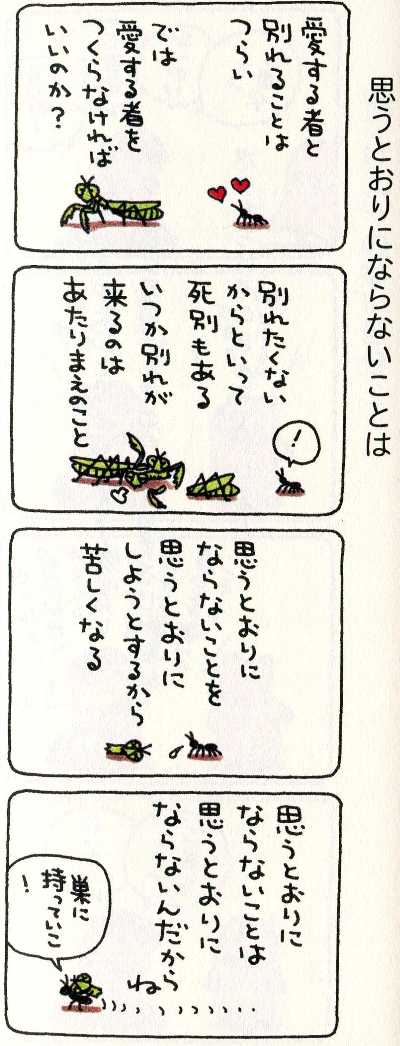 思うとおりにならないことは
愛する者と
別れることは
つらい
では
愛する者を
つくらなければ
いいのか？
別れたくない
からといって
死別もある
いつか別れが
来るのは
あたりまえのこと
！
思うとおりに
ならないことを
思うとおりに
しようとするから
苦しくなる
思うとおりに
ならないことは
思うとおりに
ならないんだから
ね
巣に
持っていこ
！